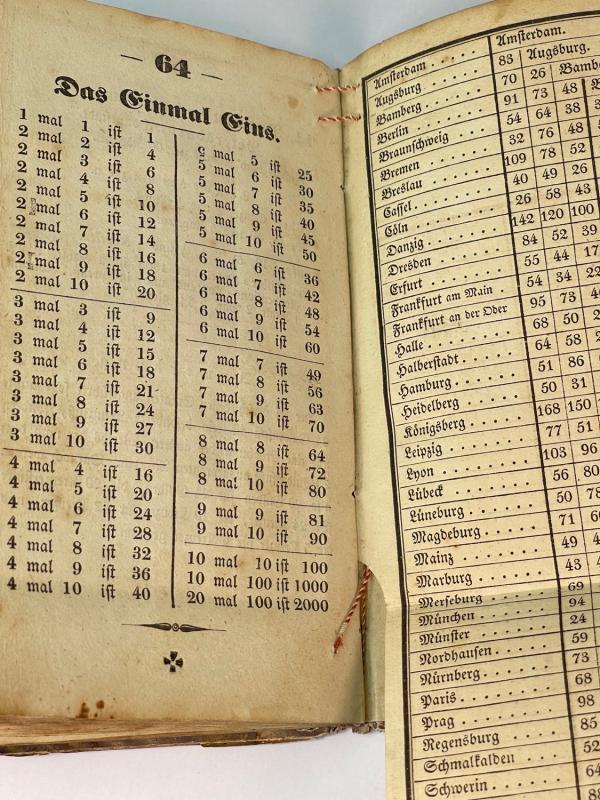 — 64 —
Das Einmal Eins.
1 mal 1 ist 1
2 mal 2 ist 4
2 mal 3 ist 6
2 mal 4 ist 8
2 mal 5 ist 10
2 mal 6 ist 12
2 mal 7 ist 14
2 mal 8 ist 16
2 mal 9 ist 18
2 mal 10 ist 20
3 mal 3 ist 9
3 mal 4 ist 12
3 mal 5 ist 15
3 mal 6 ist 18
3 mal 7 ist 21
3 mal 8 ist 24
3 mal 9 ist 27
3 mal 10 ist 30
4 mal 4 ist 16
4 mal 5 ist 20
4 mal 6 ist 24
4 mal 7 ist 28
4 mal 8 ist 32
4 mal 9 ist 36
4 mal 10 ist 40
5 mal 5 ist 25
5 mal 6 ist 30
5 mal 7 ist 35
5 mal 8 ist 40
5 mal 9 ist 45
5 mal 10 ist 50
6 mal 6 ist 36
6 mal 7 ist 42
6 mal 8 ist 48
6 mal 9 ist 54
6 mal 10 ist 60
7 mal 7 ist 49
7 mal 8 ist 56
7 mal 9 ist 63
7 mal 10 ist 70
8 mal 8 ist 64
8 mal 9 ist 72
8 mal 10 ist 80
9 mal 9 ist 81
9 mal 10 ist 90
10 mal 10 ist 100
10 mal 100 ist 1000
20 mal 100 ist 2000
Amsterdam . . . . . Amsterdam.
Augsburg . . . . . 83 Augsburg.
Bamberg . . . . . 70 26 Bambe
Berlin . . . . . 91 73 48
Braunschweig . . . . 54 64 38
Bremen . . . . . 32 76 48
Breslau . . . . . 109 78 52
Cassel . . . . . 40 49 26
Cöln . . . . . 26 58 43
Danzig . . . . . 142 120 100
Dresden . . . . . 84 52 39
Erfurt . . . . . 55 44 17
Frankfurt am Main 54 34 22
Frankfurt an der Oder 95 73
Halle . . . . . 68 50
Halberstadt . . . . 64 58
Hamburg . . . . . 51 86
Heidelberg . . . . 50 31
Königsberg . . . . 168 150
Leipzig . . . . . 77 51
Lyon . . . . . 103 96
Lübeck . . . . . 56 80
Lüneburg . . . . . 50 78
Magdeburg . . . . 71
Mainz . . . . . 49
Marburg . . . . . 43
Merseburg . . . . 69
München . . . . . 94
Münster . . . . . 24
Nordhausen . . . . 59
Nürnberg . . . . . 73
Paris . . . . . 68
Prag . . . . . 98
Regensburg . . . . 85
Schmalkalden . . . 52
Schwerin . . . . . 64